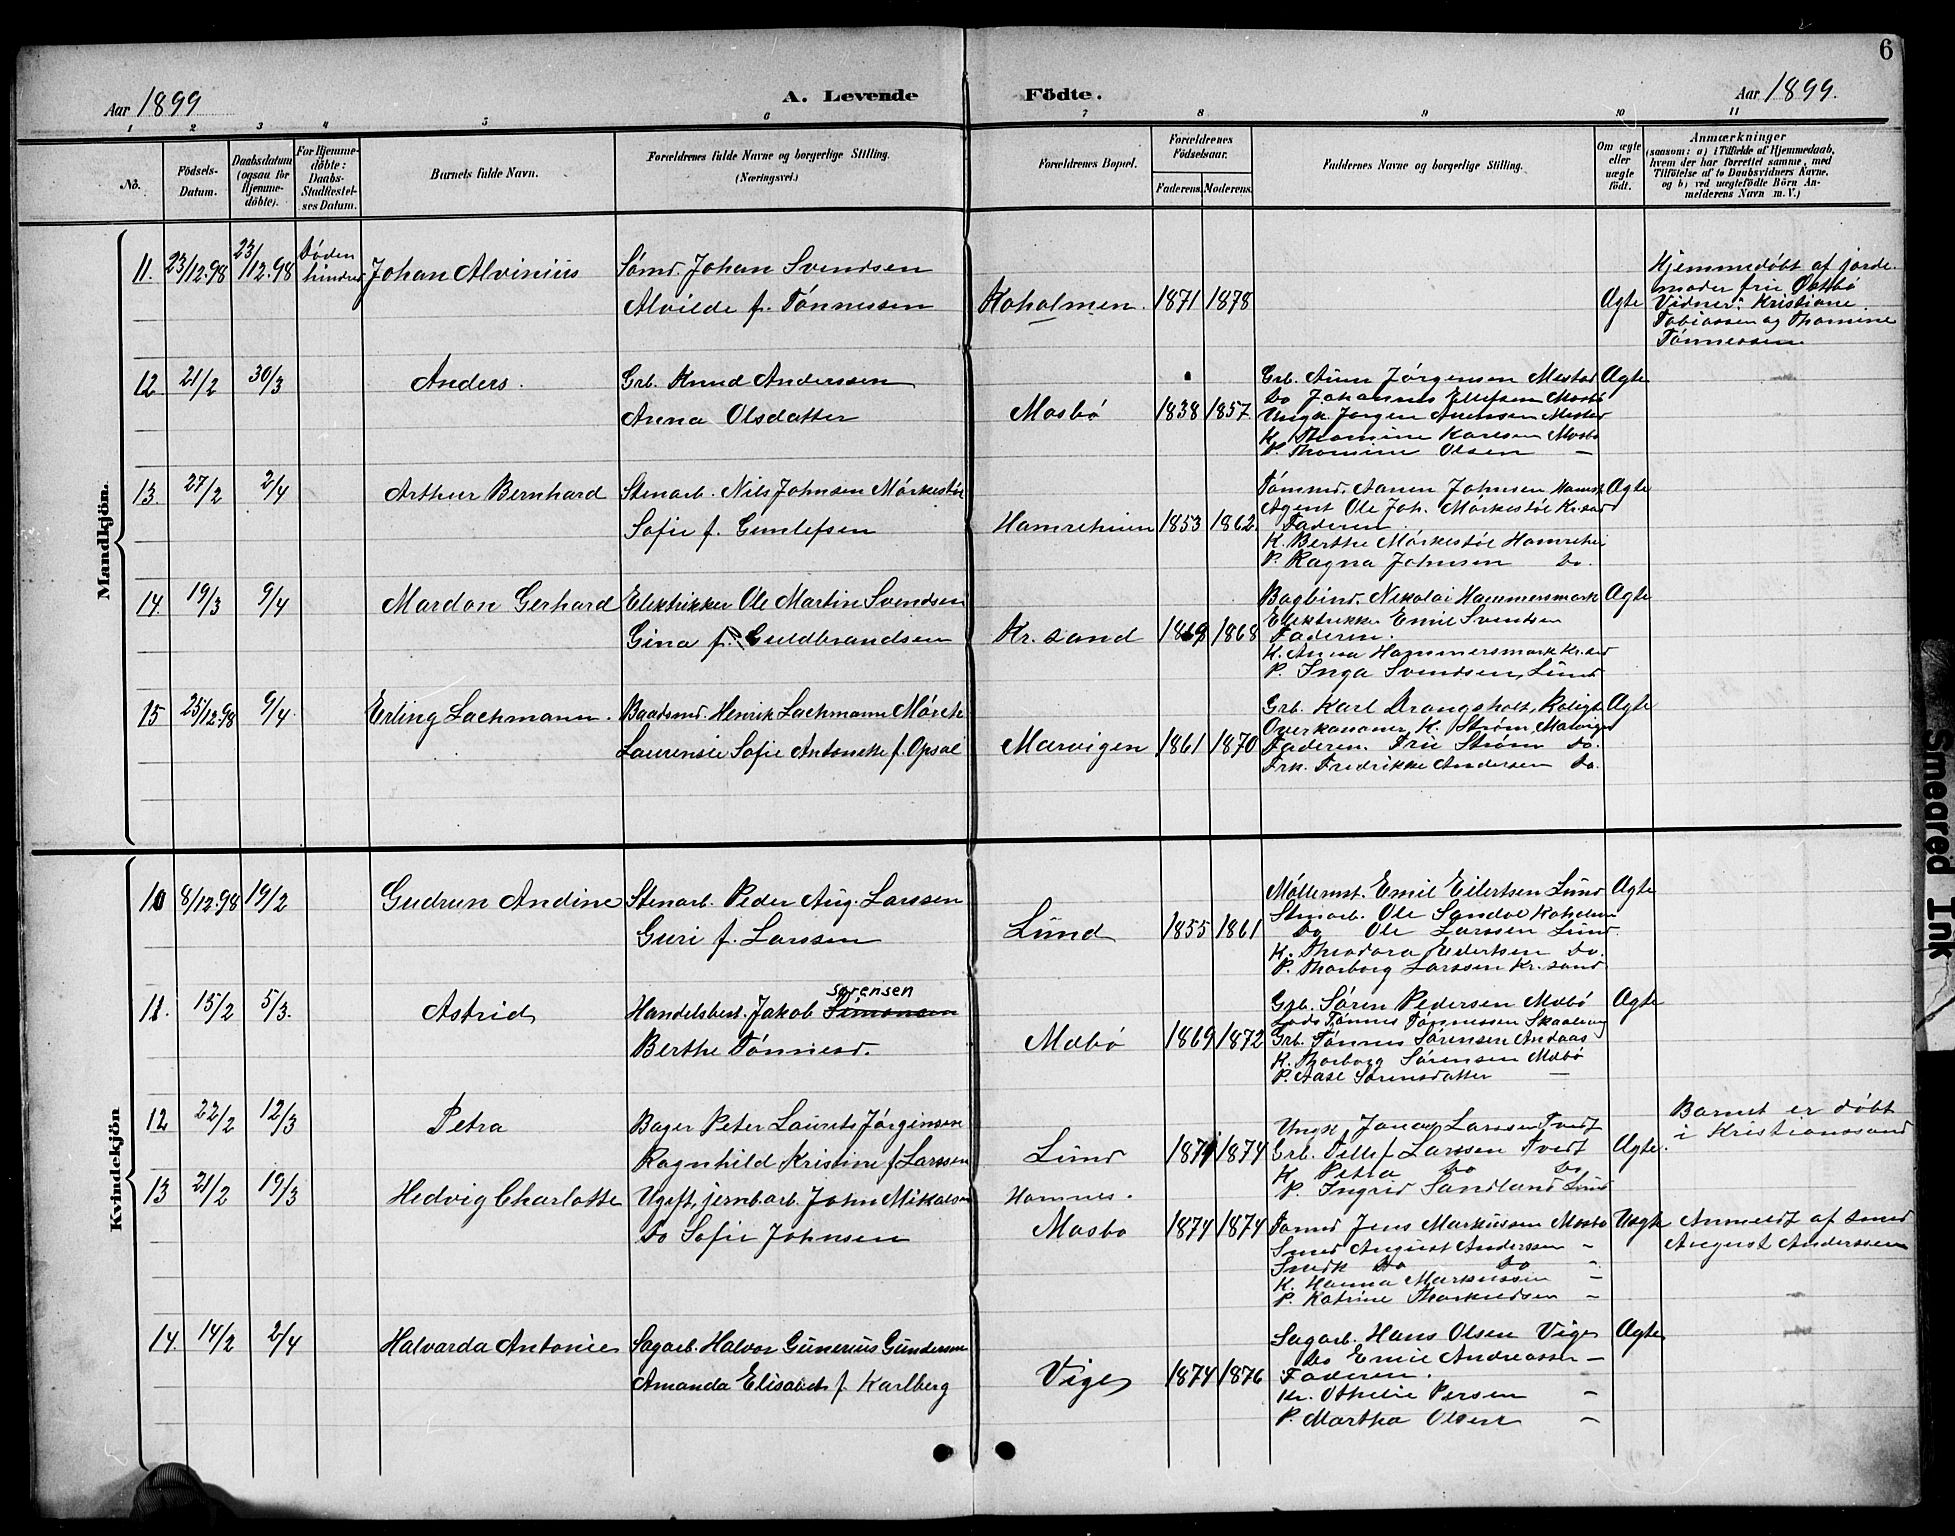 6
Aar 1899 A. Levende Födte. Aar 1899.
1 2 3 4 5 6 7 8 9 10 11
No. Födsels-Datum. Daabsdatum (ogsaa for Hjemme-döbte). For Hjemme-döbte: Daabs-Stadfæstel-ses Datum. Barnets fulde Navn. Forældrenes fulde Navne og borgerlige Stilling. (Næringsvei.) Forældrenes Bopæl. Forældrenes Födselsaar. Faderens. Moderens. Faddernes Navne og borgerlige Stilling. Om ægte eller uægte födt. Anmærkninger (saasom: a) i Tilfælde af Hjemmedaab, hvem der har forrettet samme, med Tilföielse af to Daabsvidners Navne, og b) ved uægtefödte Börn Anmelderens Navn m. V.)
Mandkjön.
11. 23/12.98 23/12.98 Døden hindred Johan Alvinius Sømd. Johan Svendsen
Alvilde f. Tønnessen Koholmen. 1871 1878 Ægte
Hjemmedøbt af jorde-
moder fru
Vidner: Kristiane
Tobiassen og Thomine
Tønnessen
12 21/2 30/3 Anders. Grb. Knud Anderssen
Anna Olsdatter Mosbø 1838 1857
Grb. Aanen Jørgensen Mestad Ægte
Do Johannes Ellefsen Mosbø
Ungk. Jørgen Anensen Mestad
K. Thomine Karlsen Mosbø
P. Thomine Olsen —
13. 27/2 2/4 Arthur Bernhard Stenarb. Nils Johnsen Mørkestøl
Sofie f. Gunlefsen Hamreheien 1853 1862
Tømmd. Aanen Johnsen Ægte
Agent Ole Joh. Mørkestøl Kr.sand
Faderen.
K. Berthe Mørkestøl Hamrehei
P. Ragna Johnsen Do.
14. 19/3 9/4 Mardon Gerhard Elektrikker Ole Martin Svendsen
Gina f. Guldbrandsen Kr.sand 1869 1868
Bogbind. Nikolai Hammersmark Ægte
Elektrikker Emil Svendsen
Faderen.
K. Anna Hammersmark Kr.sand
P. Inga Svendsen, Lund
15 25/12.98 9/4 Erling Lachmann. Baadsmd. Henrik Lachmann Mørch
Laurensie Sofie Antonette f. Opsal Marvigen 1861 1870
Grb. Karl Drangsholt, Ægte
K. Strøm Marvigen
Faderen. Fru Strøm Do.
Frk. Fredrikke Andersen Do.
Kvindekjön
10 8/12.98 19/2 Gudrun Andine Stenarb. Peder Aug. Larssen
Guri f. Larssen Lund 1855 1861
Møllermst. Emil Eilertsen Lund Ægte
Stenarb. Ole Sandal Koholmen
Do Ole Larssen Lund.
K. Theodora Eilertsen Do.
P. Thorborg Larssen Kr.sand
11. 15/2 5/3. Astrid Handelsbest. Jakob Simonsen sørensen
Berthe Tønnesd. Mæbø 1869 1872
Grb. Søren Pedersen Mæbø Ægte
Lods Tønnes Tønnessen
Grb. Tønnes Sørensen Andaas
K. Thorborg Sørensen Mæbø
P. Aase Sørensdatter —
12 22/2 12/3 Petra Bager Peter Laurits Jørginsen
Ragnhild Kristine f. Larssen Lund 1874
Larssen Tvedt
Grb. Tellef Larssen Tvedt Ægte.
K. Petra Do Do
P. Ingrid Sandland Lund
Barnet er døbt
i Kristianssand
13 21/2 19/3 Hedvig Charlotte Ugift, jernbarb. John Mikalsen
Do Sofie Johnsen Hamnes.
Mosbø 1874 1874
Tømmd Jens Markussen Mosbø Uægte
Smed August Anderssen —
Smedk Do Do —
K. Hanna Markussen —
P. Katrine —
Anmeldt af smed
August Anderssen
14. 14/2 2/4 Halvarda Antonie Sagarb. Halvor Gunerius Gundersen
Amanda Elisabeth f. Karlberg Vige 1874 1876
Sagarb. Hans Olsen Vige Ægte
Do Emil Andreassen —
Faderen.
K. Othelie Persen —
P. Martha Olsen —
Smeared Ink